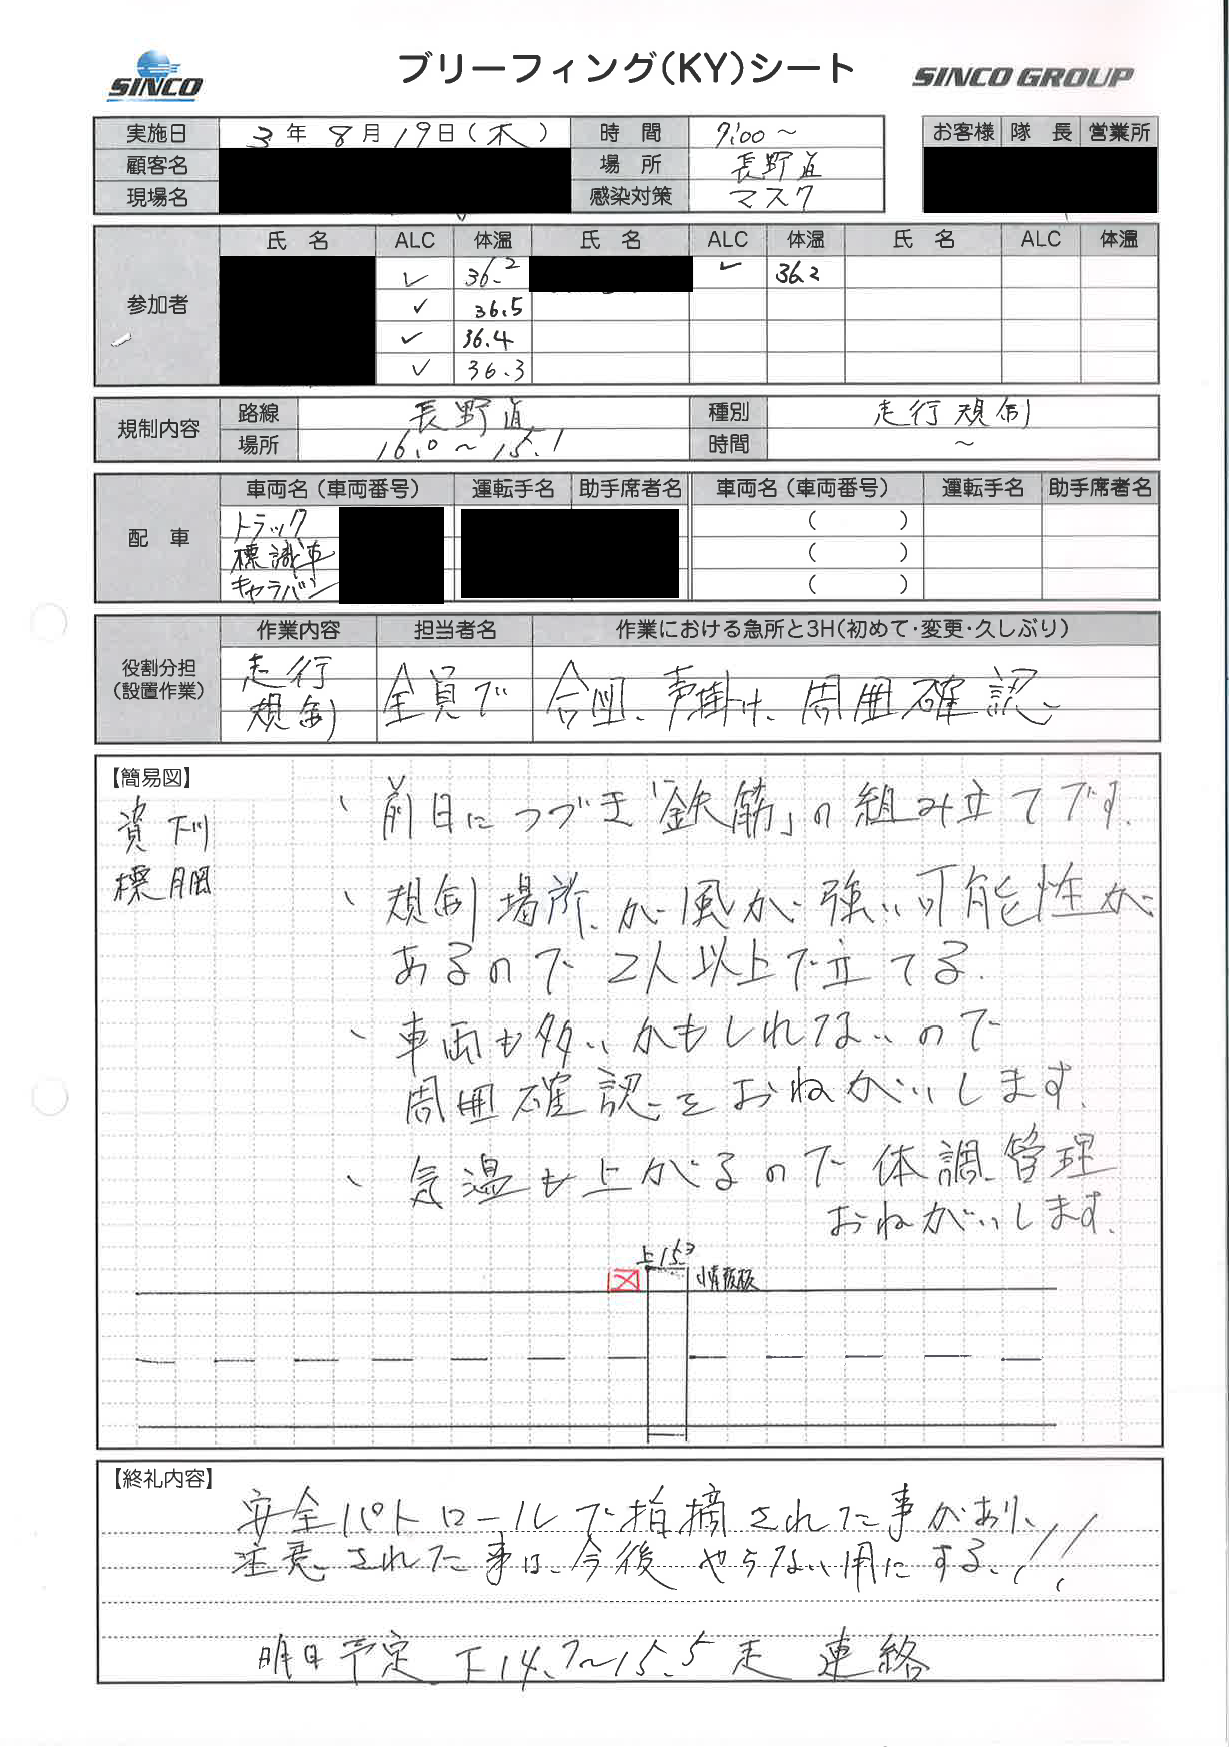 SINCO
ブリーフィング(KY)シート
SINCO GROUP
実施日 3年 8月 19日(木) 時間 7:00～
お客様 隊長 営業所
顧客名 場所 長野道
現場名 感染対策 マスク
氏名 ALC 体温 氏名 ALC 体温 氏名 ALC 体温
参加者
✓ 36.2 ✓ 36.2
✓ 36.5
✓ 36.4
✓ 36.3
規制内容 路線 長野道 種別 走行規制
場所 16.0～15.1 時間 ～
配車
車両名(車両番号) 運転手名 助手席者名 車両名(車両番号) 運転手名 助手席者名
トラック ( )
標識車 ( )
キャラバン ( )
役割分担
(設置作業)
作業内容 担当者名 作業における急所と3H(初めて・変更・久しぶり)
走行
規制
全員で 合図、声掛け、周囲確認
【簡易図】
資
標
、前日につづき「鉄筋」の組み立てです.
、規制場所、が風が強い可能性が
あるので2人以上で立てる.
、車両も多いかもしれないので
周囲確認をおねがいします.
、気温も上がるので体調管理
おねがいします.
上15.3
情報板
【終礼内容】
安全パトロールで指摘された事があり、
注意された事は、今後やらない用にする、!!
明日予定 下14.7～15.5 走 連絡